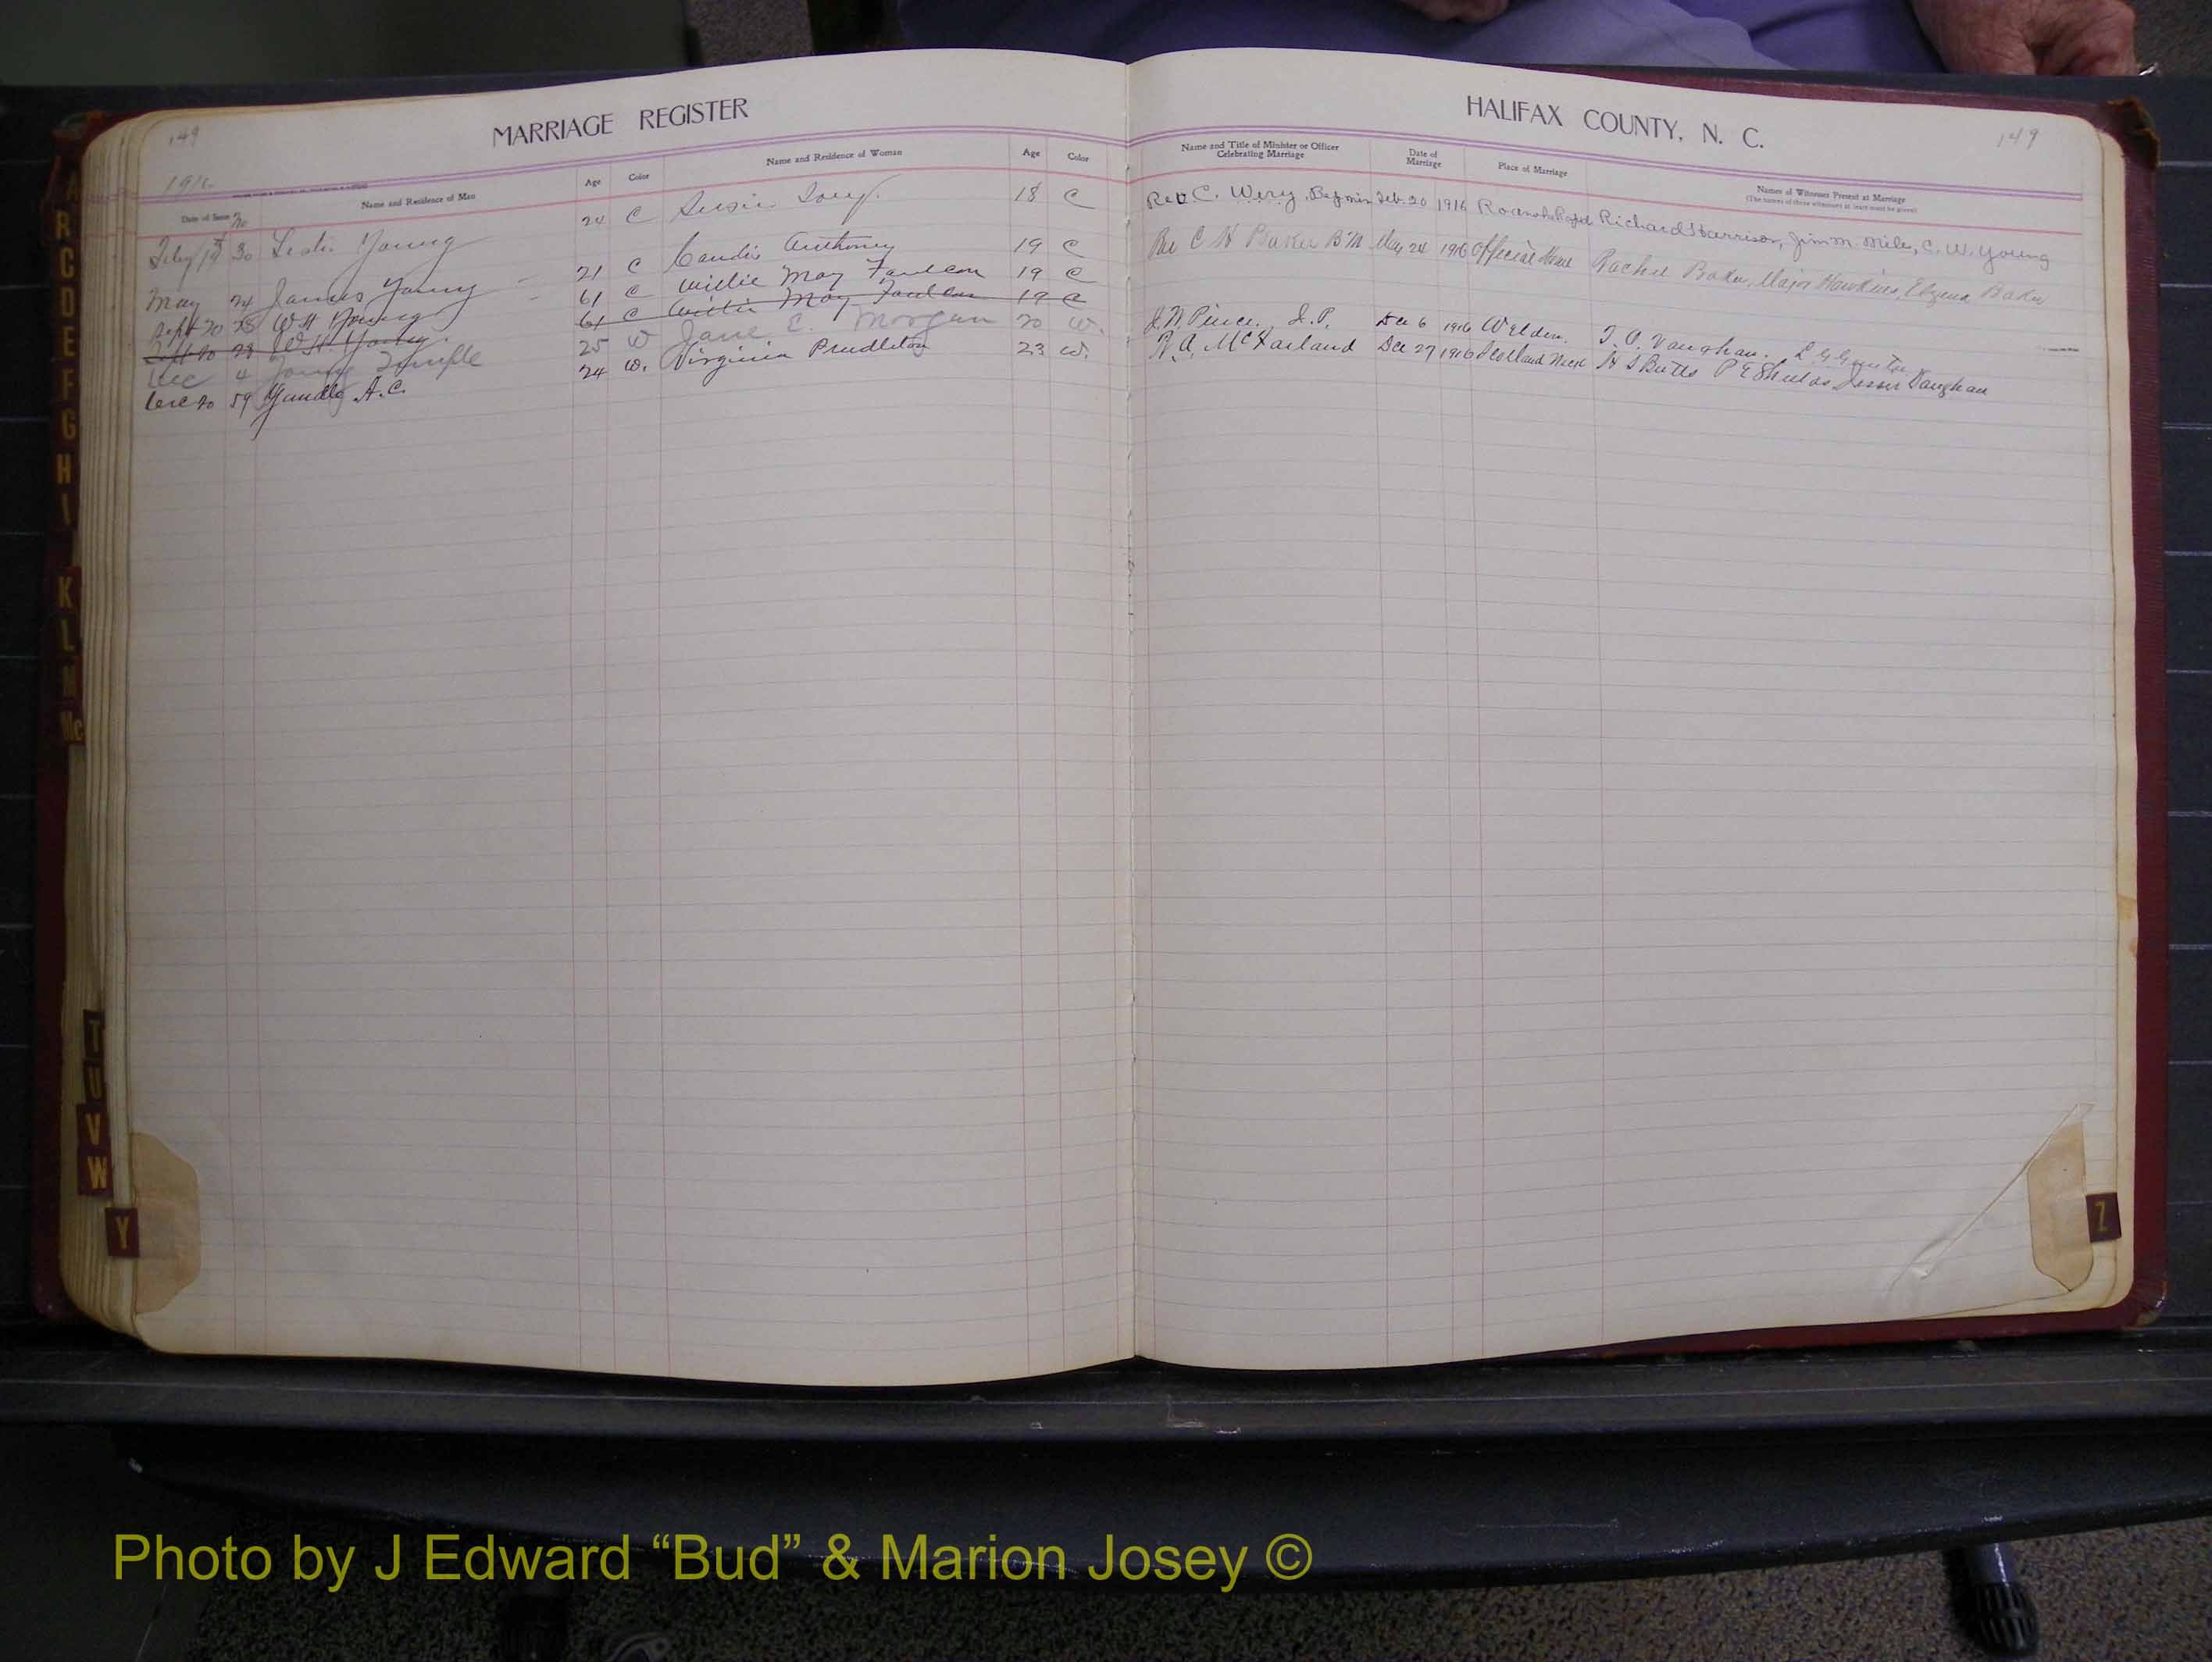 149
MARRIAGE REGISTER
HALIFAX COUNTY, N. C.
149
191
Date of Issue No
Name and Residence of Man
Age
Color
Name and Residence of Woman
Age
Color
Name and Title of Minister or Officer
Celebrating Marriage
Date of
Marriage
Place of Marriage
Names of Witnesses Present at Marriage
(The names of three witnesses at least must be given)
30 Leslie Young 24 C Susie 18 C Rev. C. Feb. 20 1916 Richard Harrison, Jim M. Miles, C. W. Young
May 24 James Young 21 C Candis Anthoney 19 C C H Baker May 24 1916 Rachel Baker, Major Hawkins, Baker
Sept 20 28 W H Young 61 C Willie May Faulcon 19 C
Sept 20 28 W. H. Young. 61 C Willie May Faulcon 19 C
Dec 4 Young Temple 25 W Jane E. Morgan 20 W. J. N. Pierce. J. P. Dec 6 1916 Weldon. T. O. Vaughan. L G
Dec 20 59 Yandle A. C. 24 W. Virginia Pendleton 23 W. R. A. McFarland Dec 27 1916 Scotland Neck H S Butts P E Shields Vaughan
A
B
C
D
E
F
G
H
I
K
L
M
Mc
T
U
V
W
Y
Z
Photo by J Edward “Bud” & Marion Josey ©